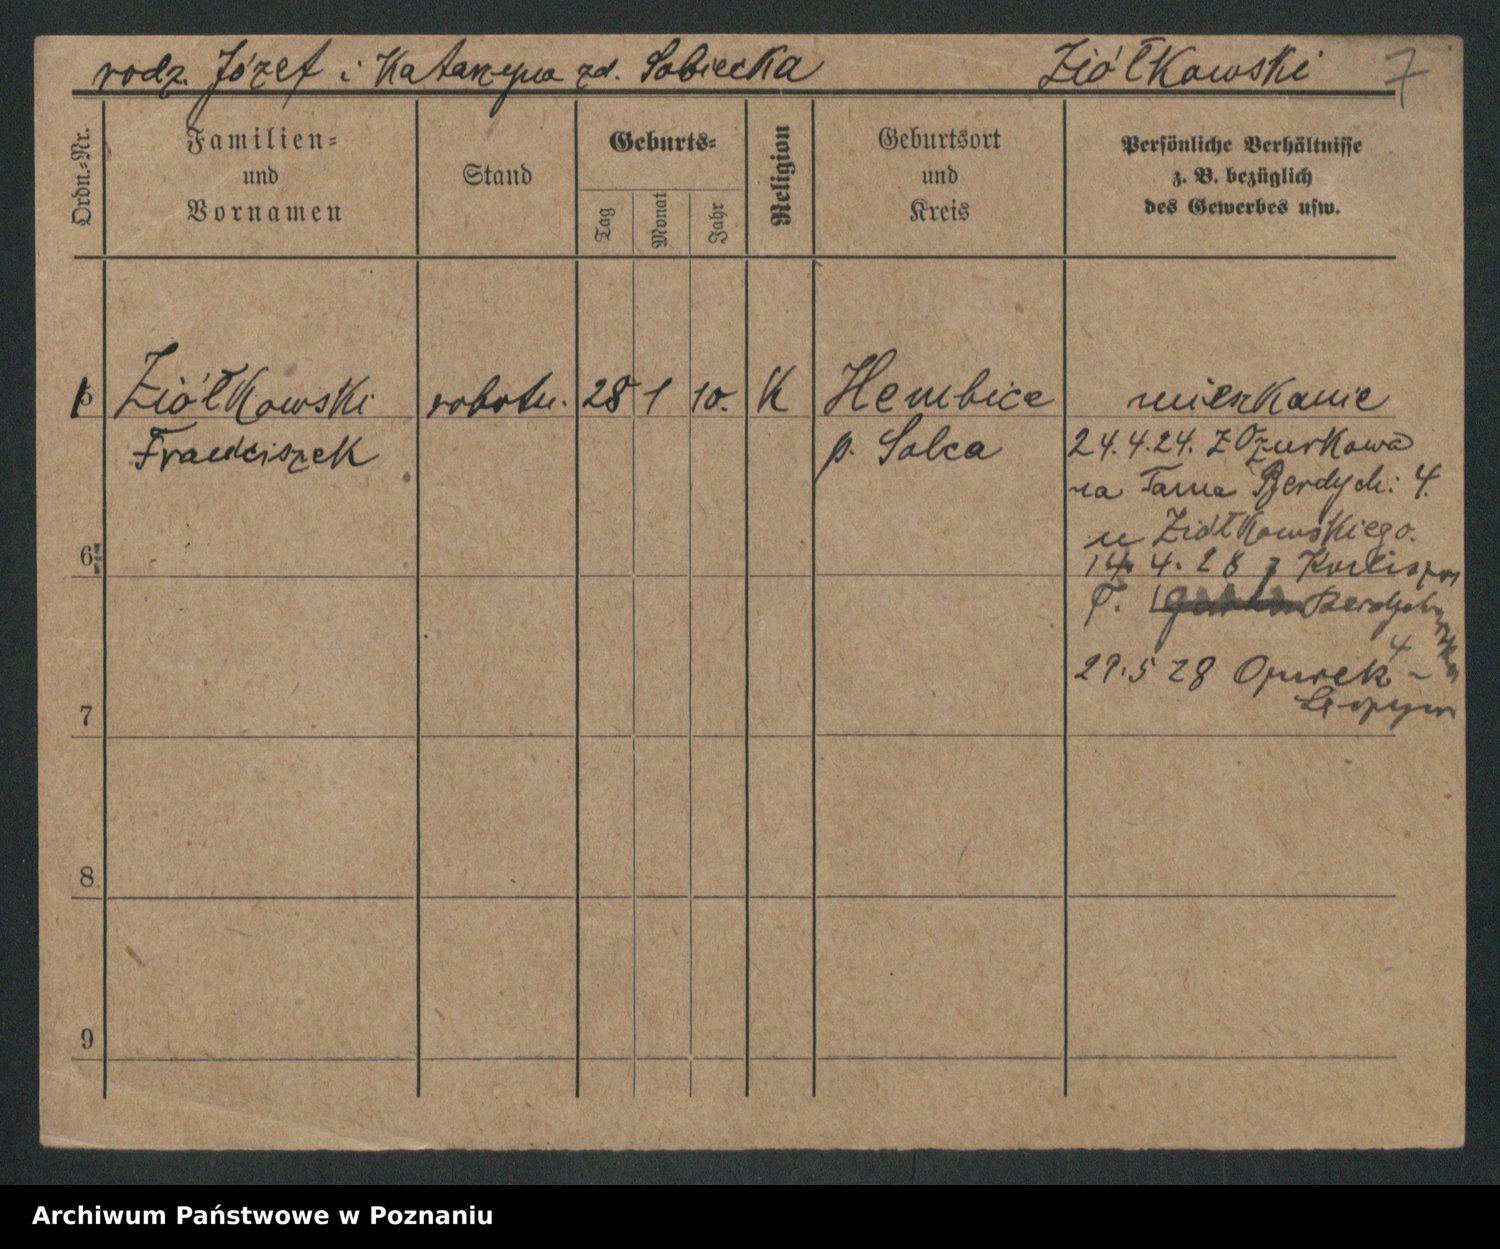 rodz. Józef i Katarzyna zd. Sobiecka Ziółkowski 7
Ordn.-Nr.
Familien-
und
Vornamen
Stand
Geburts-
Tag
Monat
Jahr
Religion
Geburtsort
und
Kreis
Persönliche Verhältnisse
z. B. bezüglich
des Gewerbes usw.
Ziółkowski robotn. 28 1 10. K Hembice mieszkanie
Franciszek p. Solca 24.4.24. z Ożurkowa
na Tama Berdych: 4.
u Ziółkowskiego.
6
14. 4. 28 z
T. Berdych
4
29.5 28 -
7
8
9
Archiwum Państwowe w Poznaniu